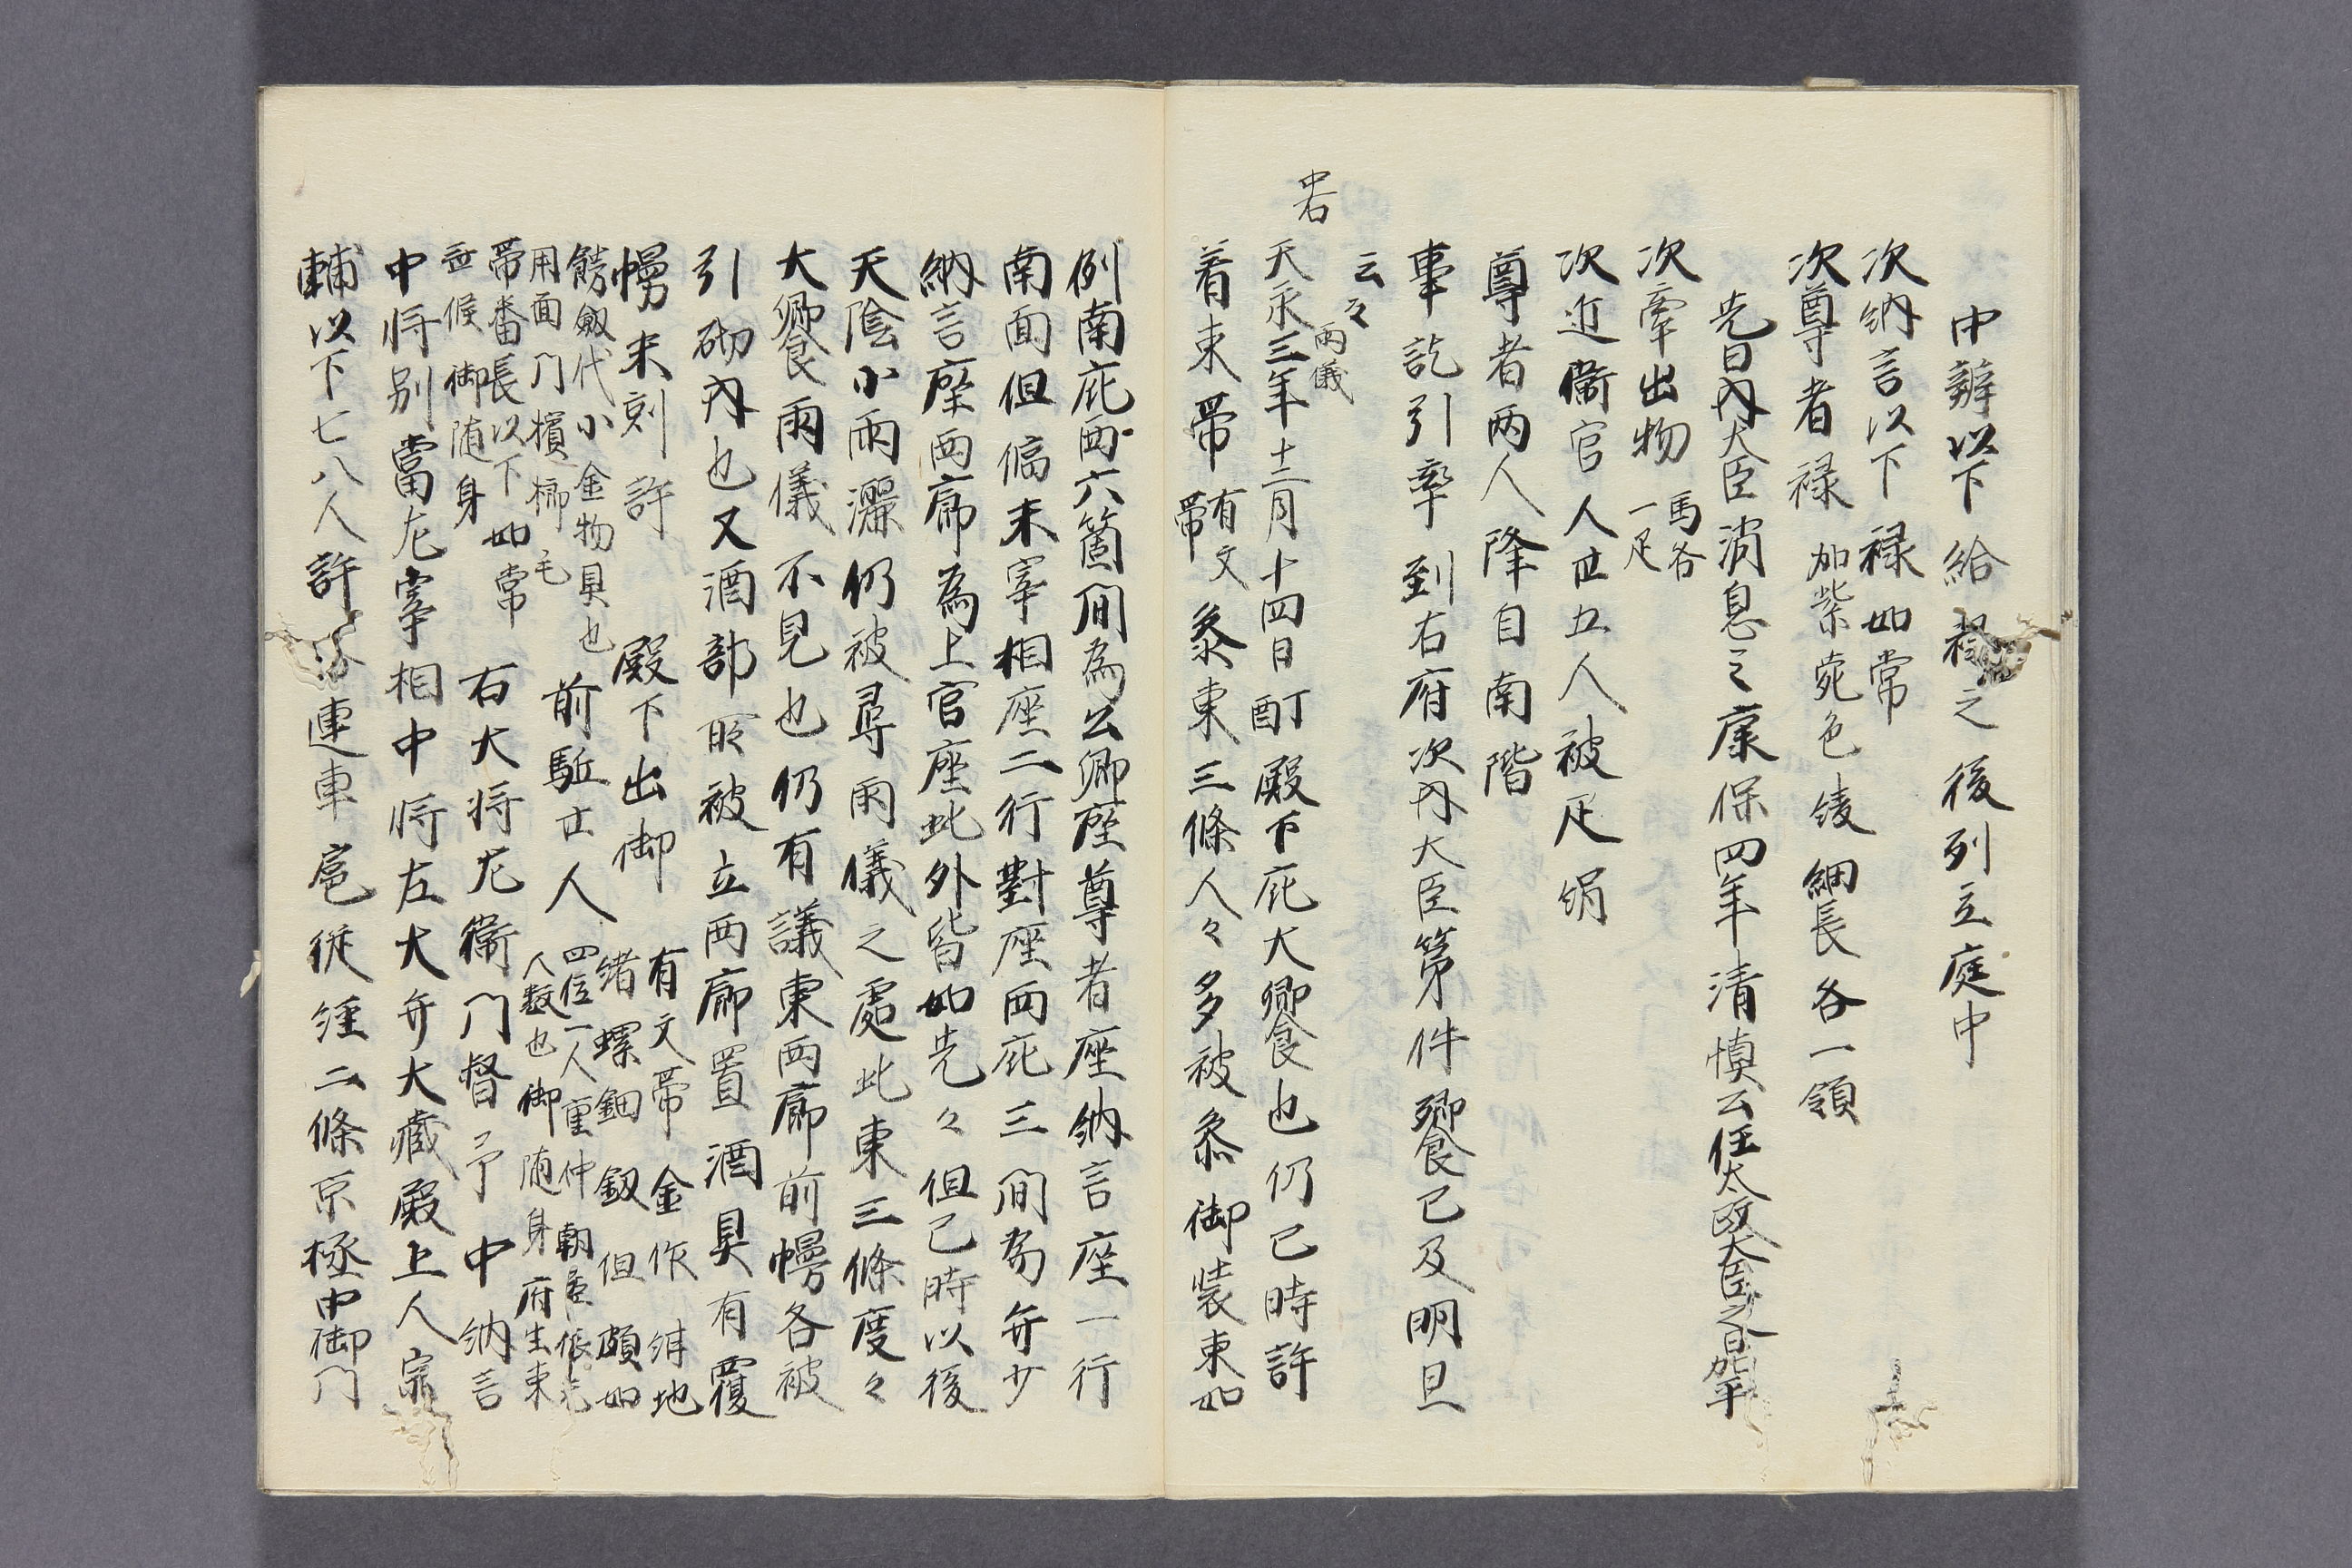 中辨以下給禄之後列立庭中
次納言以下禄如常
次尊者禄加紫菀色綾細長各一領
先日内大臣消息之康保四年清慎公任太政大臣之日
次牽出物馬各一疋
次近衛官人廿五人被疋絹
尊者両人降自南階
事訖引率到右府次内大臣第件饗已及明旦
云々
雨儀
中右
天永三年十二月十四日酊殿下庇大饗也仍巳時許
着束帯有文帯参東三條人々多被参御装束如
例南庇西六箇間為公卿座尊者座納言座一行
南面但偏末宰相座二行對座西庇三間為弁少
納言座西廊為上官座此外皆如先々但巳時以後
天陰小雨灑仍被尋雨儀之處此東三條度々
大饗雨儀不見也仍有議東西廊前幔各被
引砌内也又酒部所被立西廊置酒具有覆
幔未剋許殿下出御有文帯金作紺地
緒螺鈿釼但頗如
餝釼代小金物具也前駈廿人四位一人重仲朝臣
用面門檳榔毛
人数也御随身府生束
帯番長以下如常右大将左衛門督予中納言
並候御随身
中将別當左宰相中将左大弁大蔵殿上人宗
輔以下七八人許連車扈従経二條京極中御門